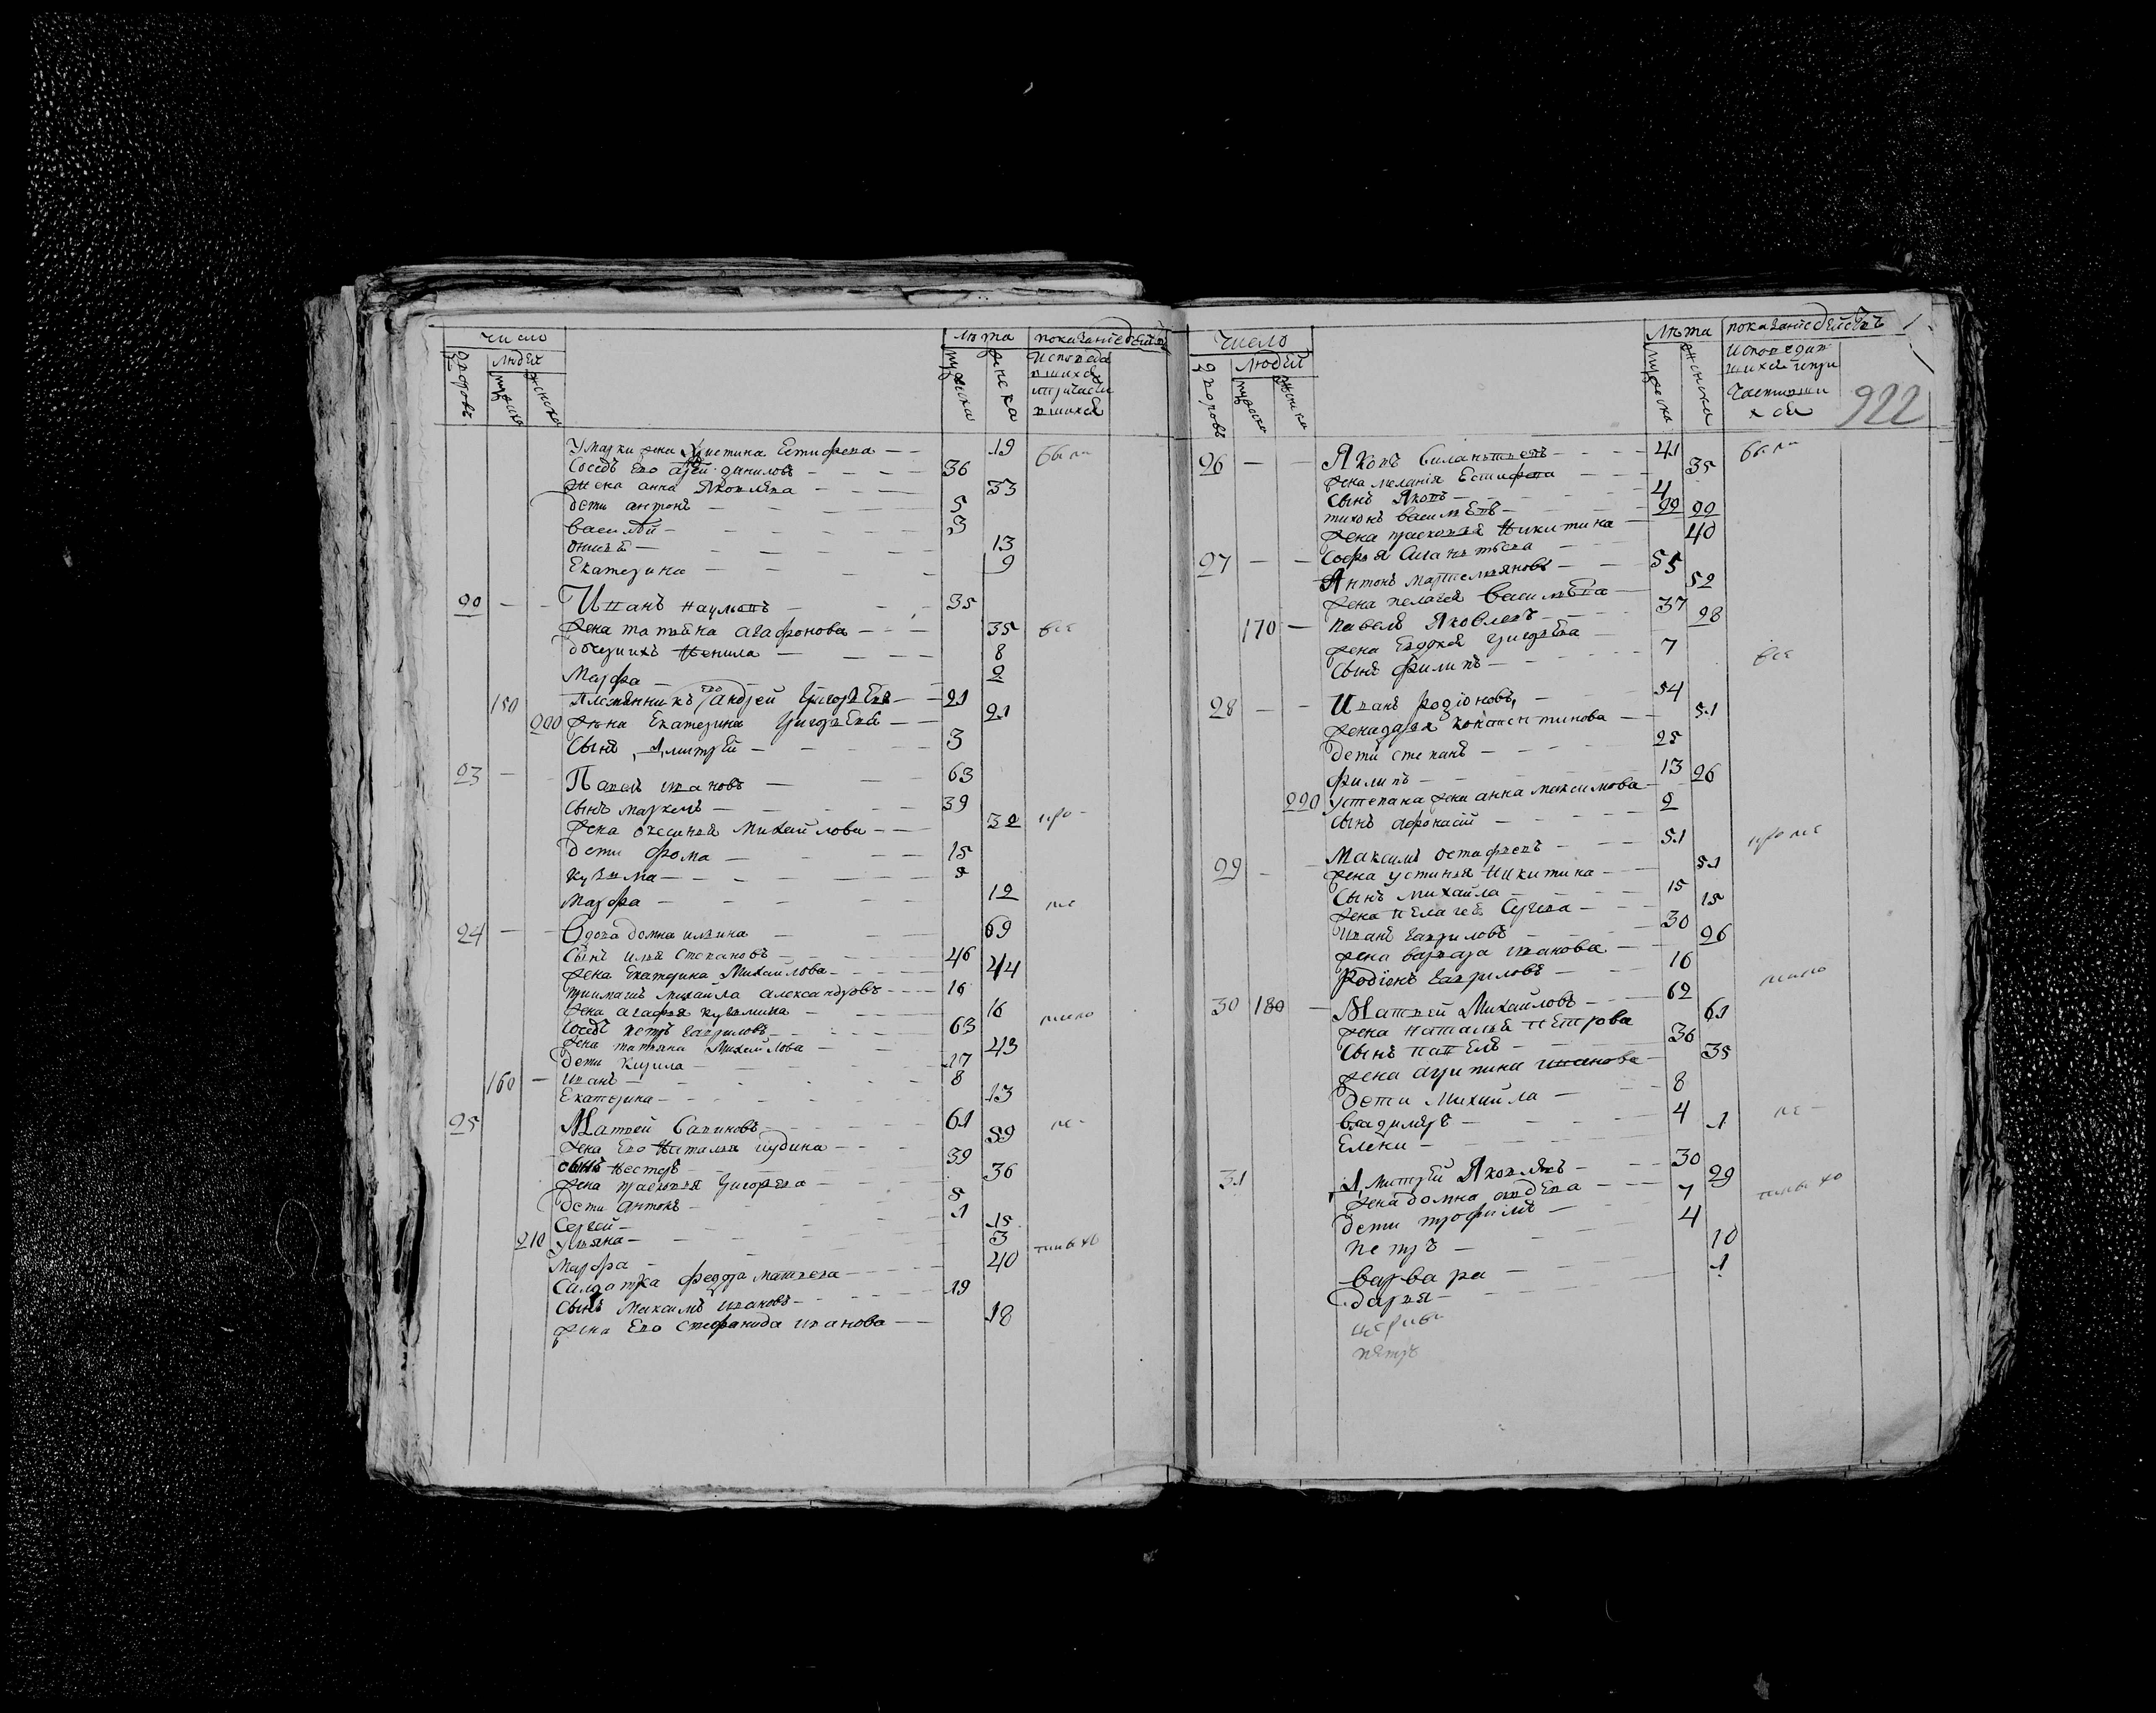 Число
Людей
Дворовъ
мужска
женска
Лѣта
мужска
женска
показание действъ
Исповеда
вшихся
ипричасти
вшихся
Умарки жена Христина Естифева — — 19 были
Соседъ Его данилов — — — 36
Жена анна Яковлева — — — 33
дети антонъ — — — 5
василей — — — 3
13
Екатерина — — — 9
Иванъ наумовъ — — — 35
жена татьяна агафонова — — — 35 все
дочерихъ Ненила — — — 8
Марфа — — 2
150 Племянникъ Его андрей Григорьевъ — — 21
200 жена Екатерина Григорьева — — 21
Сынъ Дмитрей — — — 3
23 — Павелъ ивановъ — — — 63
сынъ маркелъ — — — 39
жена оксинья Михайлова — — 32
дети фома — — — 15
Кузма — — — —
Марфа — — — — 12
24 — — Вдова домна — — 69
Сынъ илья Степановъ — — — 46
жена Екатерина Михайлова — — — 44
приимашъ михайла александровъ — — — 16
жена агафья кузмина — — — 16
соседъ петръ гавриловъ — — — 63
жена татьяна Михайлова — — — 43
дети Кирила — — — 17
160 — иванъ — — — 8
Екатерина — — — 13
25 Матвей Савиновъ — — — 61
жена Его Наталья июдина — — — 59
сынъ нестеръ — — — 39
жена прасковья Григорева — — — 36
Дети антонъ — — — 5
Сергей — — — 1
210 Ульяна — — — 15
Марфа — — — 3
Салдатка федора матвеева — — — 40
Сынъ Максимъ ивановъ — — — 19
жена Его стефанида иванова — — 18
Число
Людей
Дворовъ
мужска
женска
Лѣта
мужска
женска
показание действъ
Исповедав
шихся ипри
частивши
хся
922
26 — — Яковъ — — — 41
жена меланія Естифева — — — 35
Сынъ Яковъ — — — 4
тихонъ василевъ — — — 22
жена прасковья Никитина — — 22
27 — — Софья — — 40
Антонъ — — 55
жена пелагея василева — — 52
170 — павелъ Яковлевъ — — — 37
жена Евдокея Григорева — — 28
Сынъ филипъ — — — 7 все
28 — — Иванъ Родіоновъ — — — 54
жена дарья константинова — — 51
дети степанъ — — — 25
филипъ — — — 13
220 устепана жена анна максимова — 26
Сынъ афонасій — — — 2
29 — Максимъ остафьевъ — — — 51
жена устинья Никитина — — 51
Сынъ михайла — — — 15
жена пелагея — — — 15
Иванъ гавриловъ — — — 30
жена варвара иванова — — 26
Родіонъ гавриловъ — — 16
30 180 — Матвей Михайловъ — — — 62
жена наталья петрова — 61
Сынъ павелъ — — — 36
жена агрипина иванова — 35
дети михайла — — 8
владимеръ — — — 4
Елена — — — 1
31 Дмитрей Яковлевъ — — — 30
жена домна — — — 29
дети трофимъ — — — 7
петръ — — — 4
варвара — — — 10
дарья — — — 1
петръ